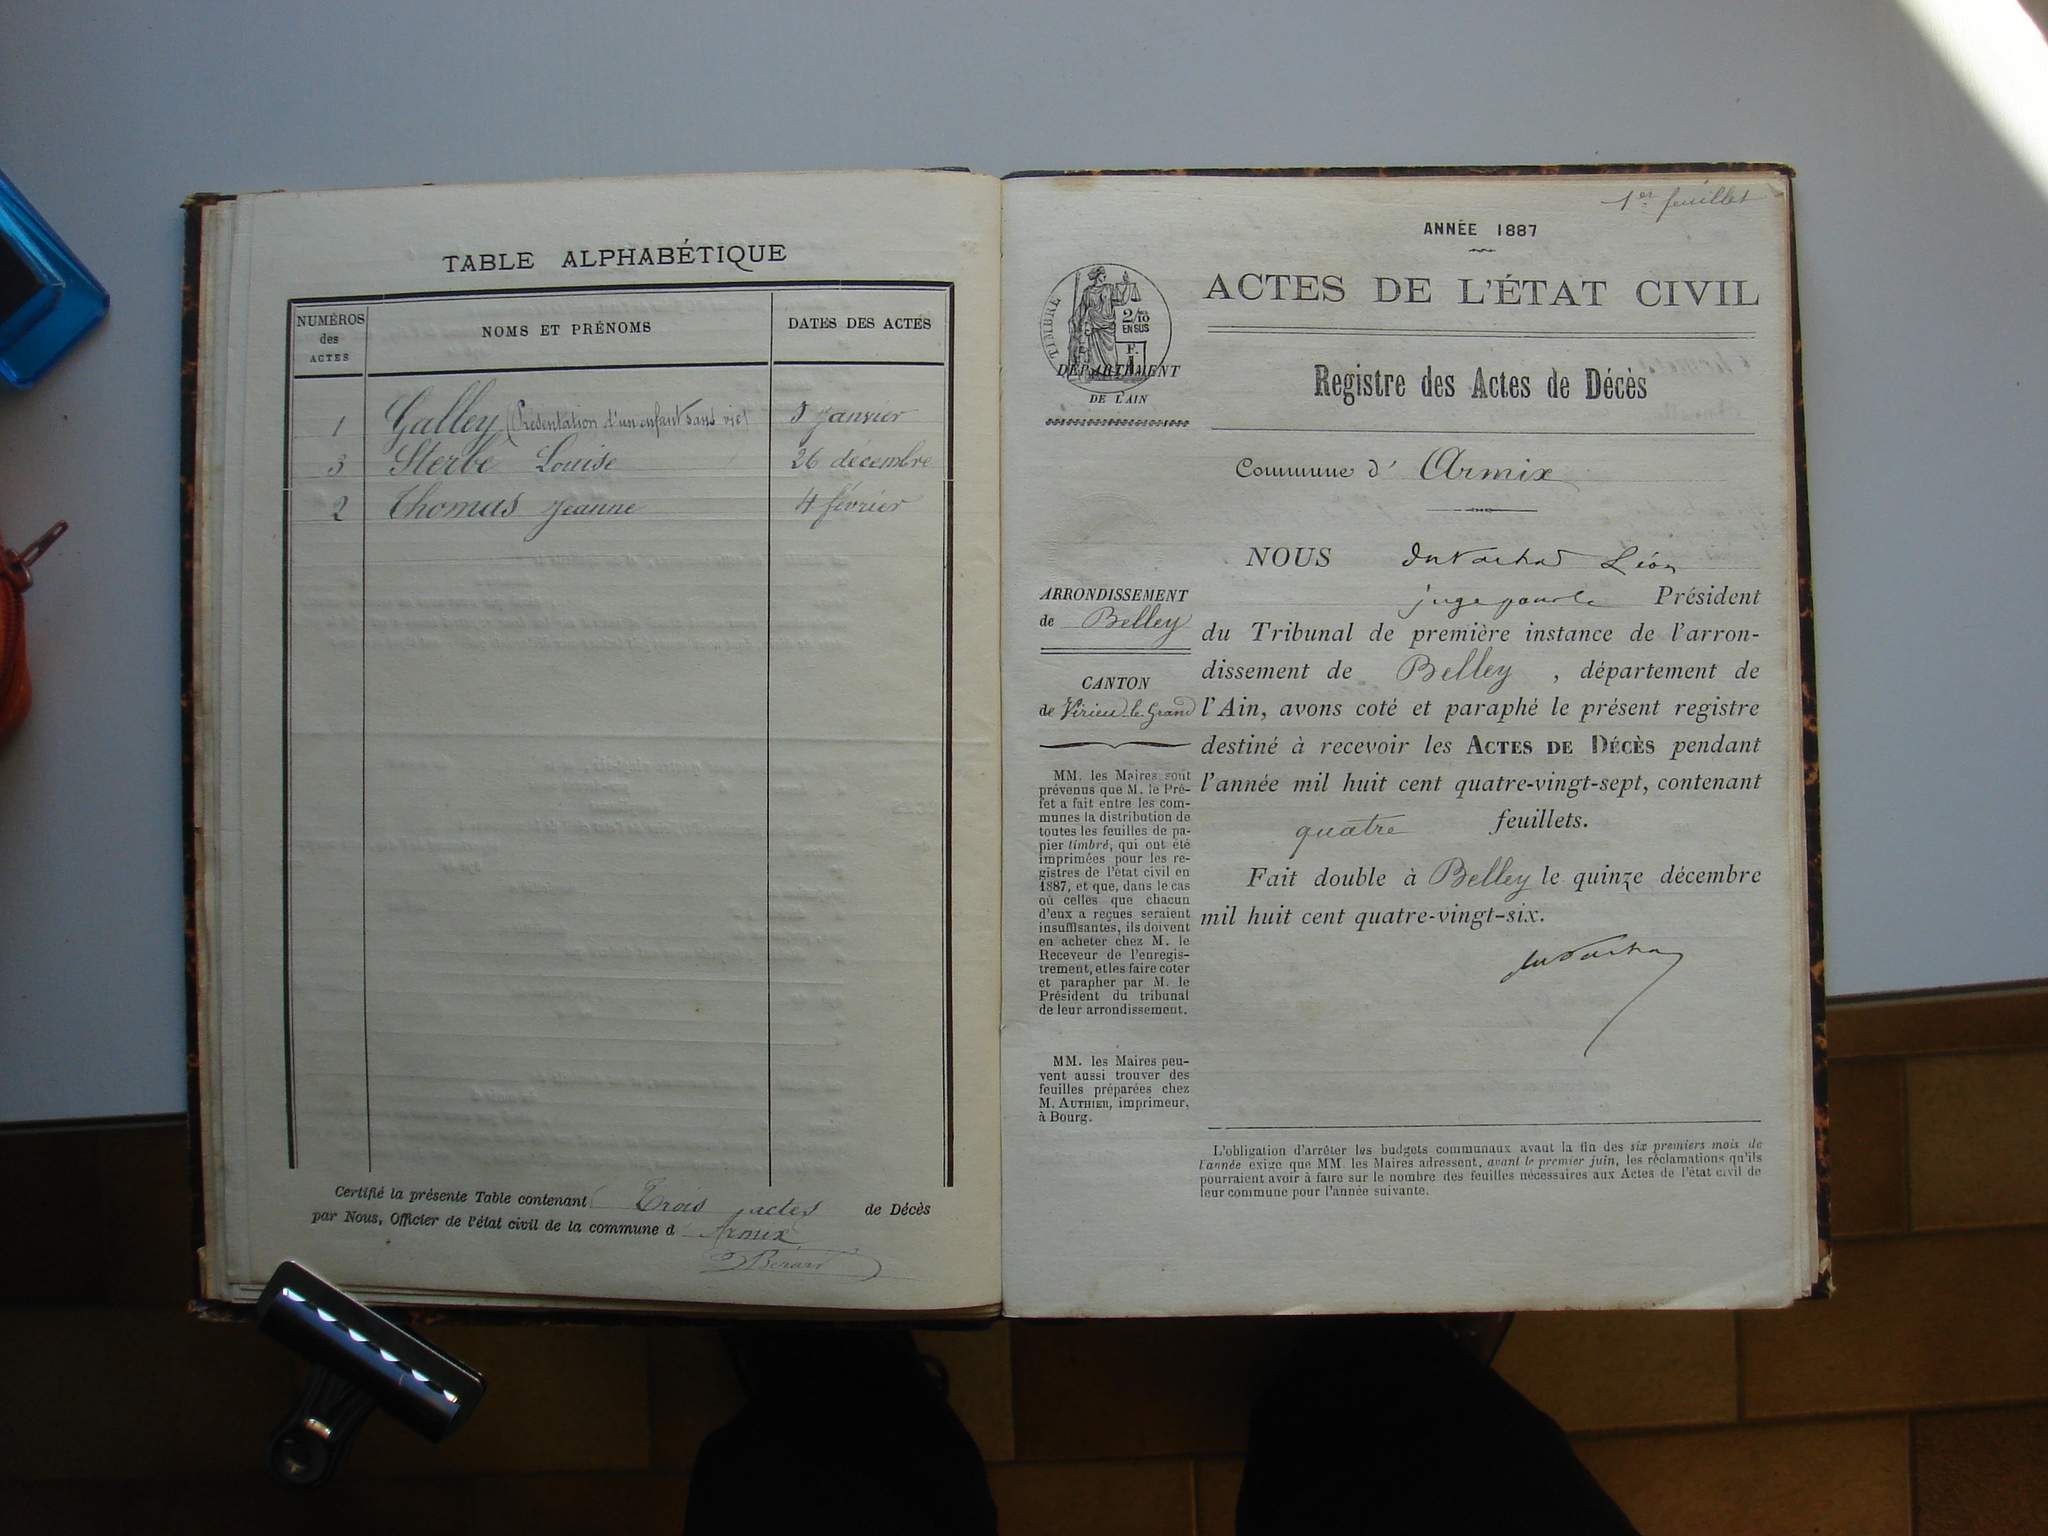 TABLE ALPHABÉTIQUE
NUMÉROS des ACTES
NOMS ET PRÉNOMS
DATES DES ACTES
1 Galley (Présentation d'un enfant sans vie) 5 janvier
3 Sterbe Louise 26 décembre
2 Thomas Jeanne 4 février
Certifié la présente Table contenant Trois actes de Décès
par Nous, Officier de l'état civil de la commune d Armix
Bérard
1er feuillet
ANNÉE 1887
ACTES DE L'ÉTAT CIVIL
TIMBRE
2/10
EN SUS
F.
1
DÉPARTEMENT
DE L'AIN
Registre des Actes de Décès
Commune d' Armix
ARRONDISSEMENT
de Belley
CANTON
de Virieu-le-Grand
MM. les Maires sont
prévenus que M. le Pré-
fet a fait entre les com-
munes la distribution de
toutes les feuilles de pa-
pier timbré, qui ont été
imprimées pour les re-
gistres de l'état civil en
1887, et que, dans le cas
où celles que chacun
d'eux a reçues seraient
insuffisantes, ils doivent
en acheter chez M. le
Receveur de l'enregis-
trement, et les faire coter
et parapher par M. le
Président du tribunal
de leur arrondissement.
MM. les Maires peu-
vent aussi trouver des
feuilles préparées chez
M. AUTHIER, imprimeur,
à Bourg.
NOUS Léon
juge pour le Président
du Tribunal de première instance de l'arron-
dissement de Belley , département de
l'Ain, avons coté et paraphé le présent registre
destiné à recevoir les ACTES DE DÉCÈS pendant
l'année mil huit cent quatre-vingt-sept, contenant
quatre feuillets.
Fait double à Belley le quinze décembre
mil huit cent quatre-vingt-six.
L'obligation d'arrêter les budgets communaux avant la fin des six premiers mois de
l'année exige que MM. les Maires adressent, avant le premier juin, les réclamations qu'ils
pourraient avoir à faire sur le nombre des feuilles nécessaires aux Actes de l'état civil de
leur commune pour l'année suivante.